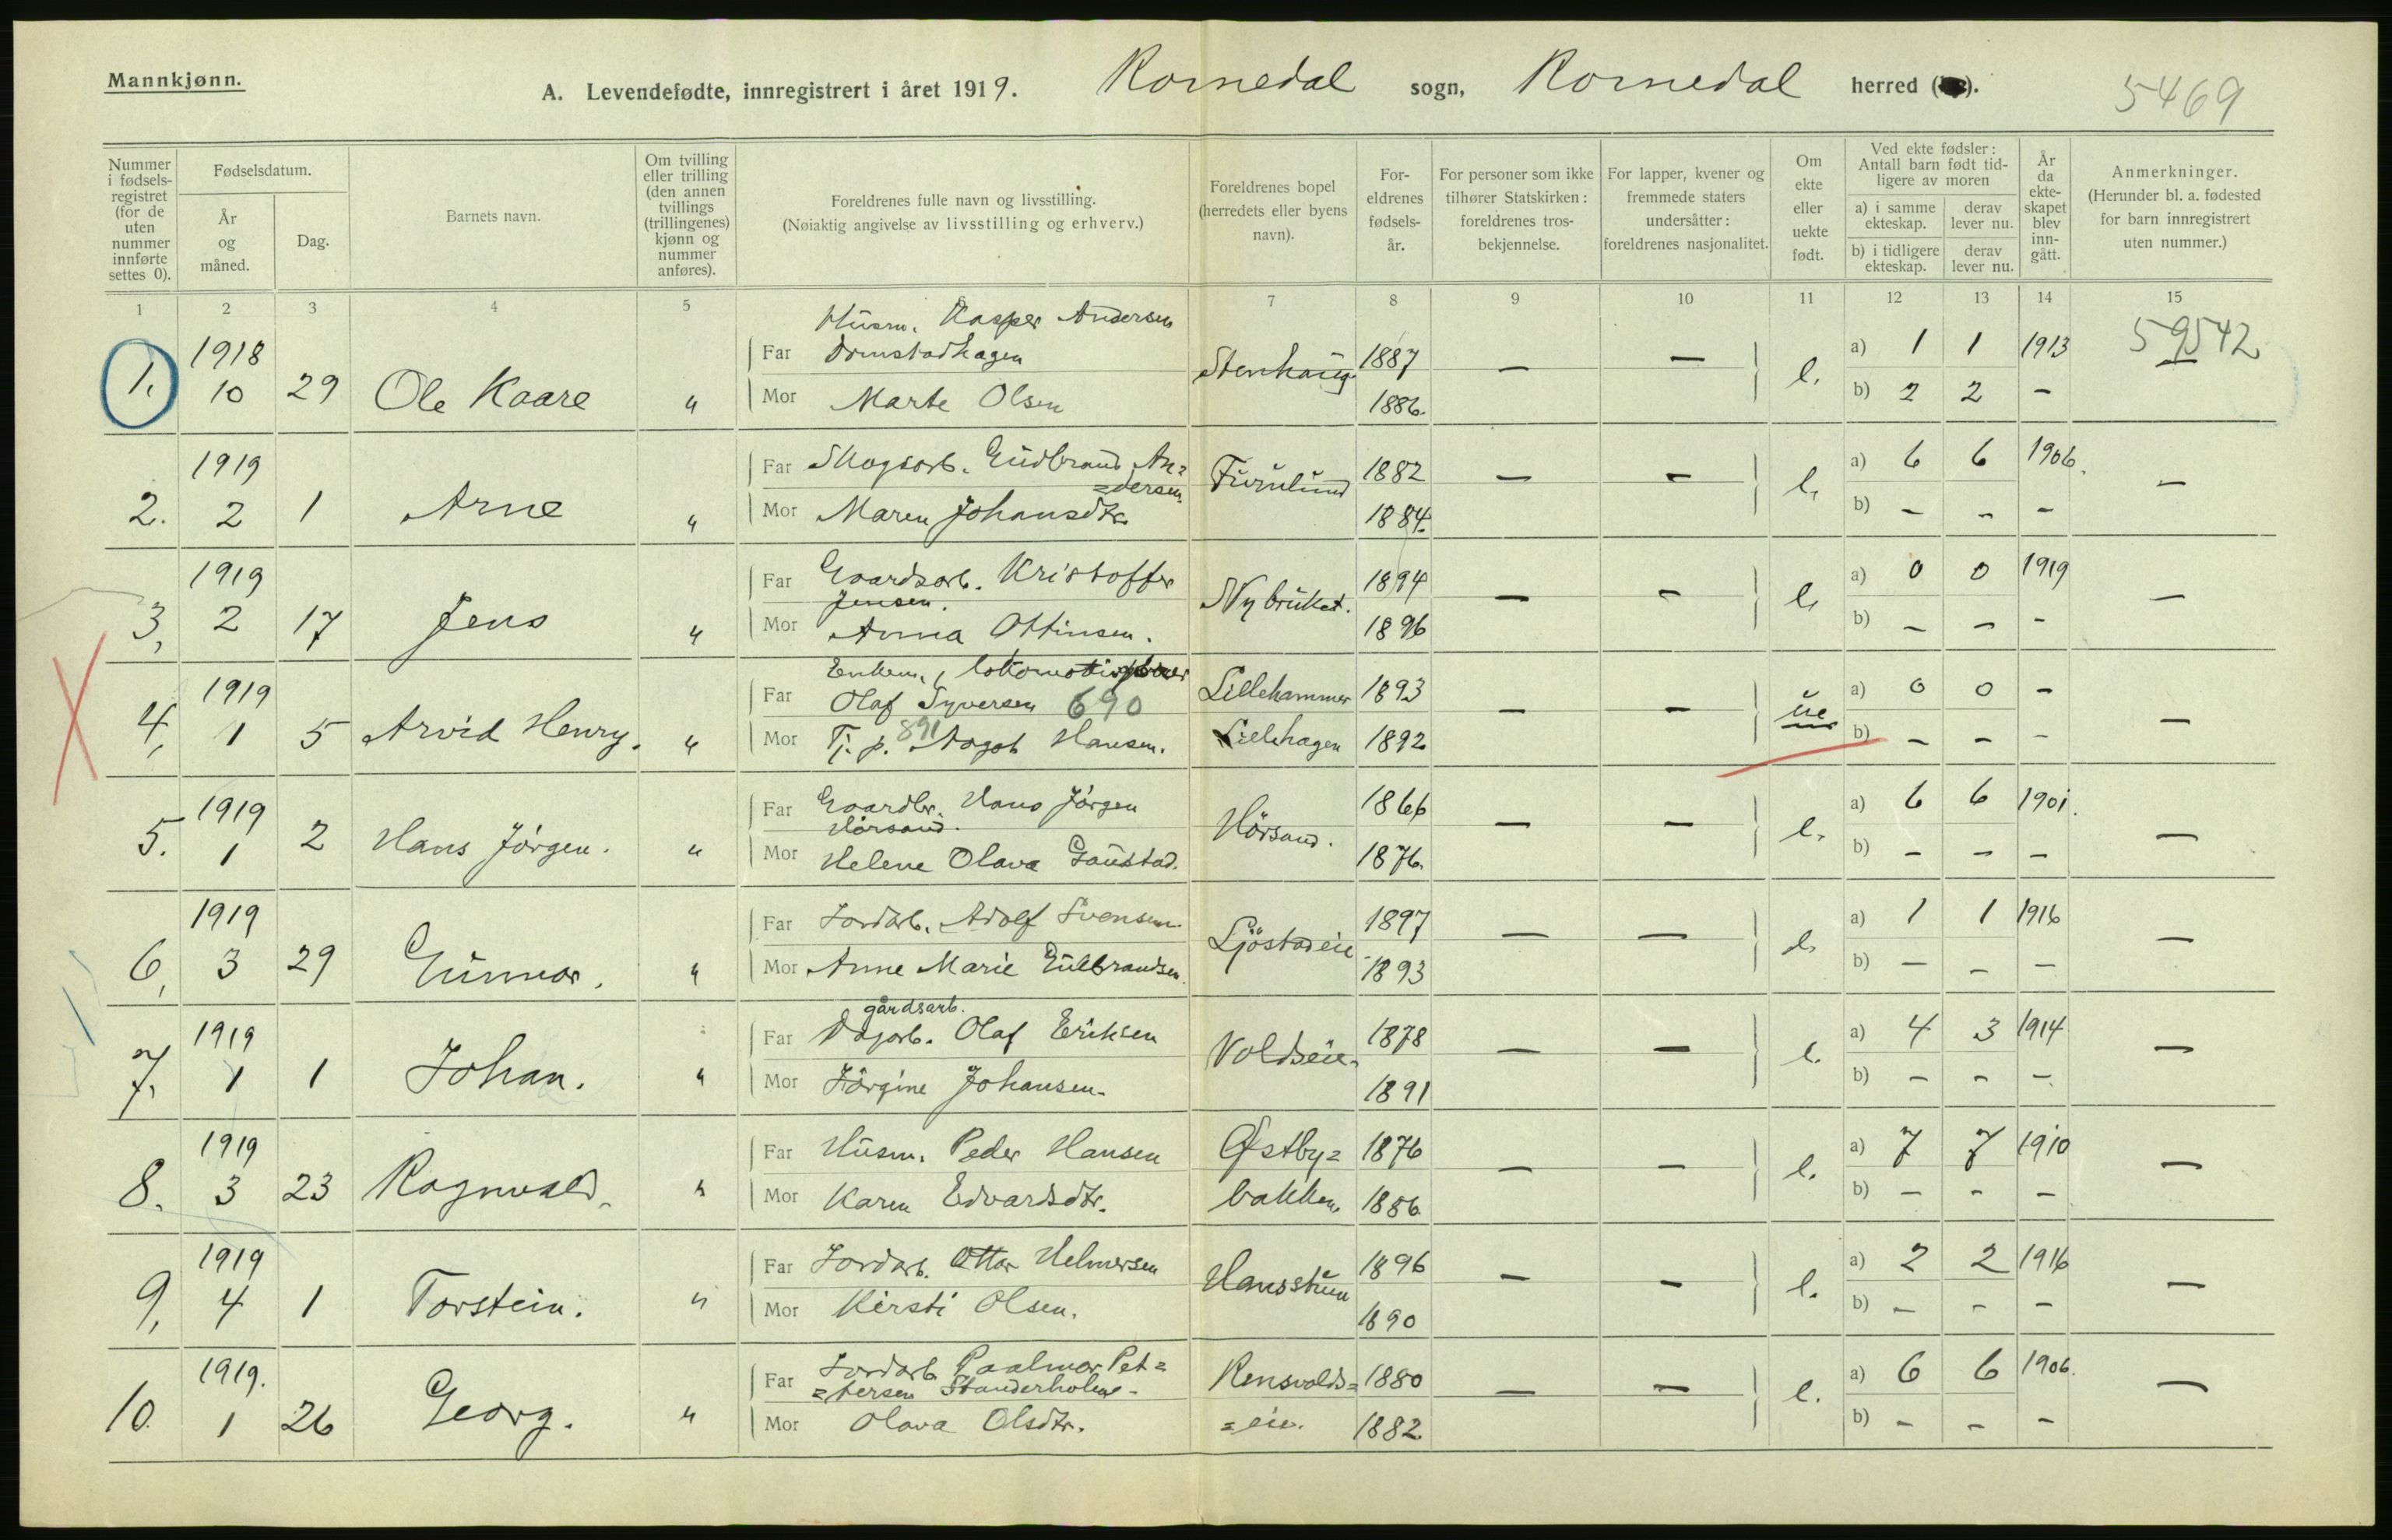 Mannkjønn.
A. Levendefødte, innregistrert i året 1919. Romedal sogn, Romedal herred ( ).
5469
Nummer i fødselsregistret (for de uten nummer innførte settes 0).
Fødselsdatum.
År og måned.
Dag.
Barnets navn.
Om tvilling eller trilling (den annen tvillings (trillingenes) kjønn og nummer anføres).
Foreldrenes fulle navn og livsstilling.
(Nøiaktig angivelse av livsstilling og erhverv.)
Foreldrenes bopel (herredets eller byens navn).
Foreldrenes fødselsår.
For personer som ikke tilhører Statskirken: foreldrenes trosbekjennelse.
For lapper, kvener og fremmede staters undersåtter: foreldrenes nasjonalitet.
Om ekte eller uekte født.
Ved ekte fødsler: Antall barn født tidligere av moren
a) i samme ekteskap.
derav lever nu.
b) i tidligere ekteskap.
derav lever nu.
År da ekteskapet blev inngått.
Anmerkninger.
(Herunder bl. a. fødested for barn innregistrert uten nummer.)
1 2 3 4 5 7 8 9 10 11 12 13 14 15
1. 1918 10 29 Ole Kaare "
Far Husm. Kasper Andersen Domstadhagen
Mor Marte Olsen
Stenhaug. 1887 1886. — — e. a) 1 1 1913 b) 2 2 — 59542
2. 1919 2 1 Arne "
Far Skogsarb. Gudbrand An=
=dersen.
Mor Maren Johansdtr.
Furulund 1882 1884. — — e. a) 6 6 1906. b) — — — —
3, 1919 2 17 Jens "
Far Gaardsarb. Kristoffer Jensen.
Mor Anna Ottinsen.
Nybruket. 1894 1896 — — e. a) 0 0 1919 b) — — — —
4, 1919 1 5 Arvid Henry. "
Far Enkem., Olaf Syversen 690
Mor Tj. p. 891 Aagot Hansen.
Lillehammer 1893 Lillehagen 1892 — — ue a) 0 0 — b) — — — —
5. 1919 1 2 Hans Jörgen. "
Far Gaardbr. Hans Jörgen Hörsand.
Mor Helene Olava Gaustad.
Hörsand. 1866 1876. — — e. a) 6 6 1901. b) — — — —
6, 1919 3 29 Gunnar. "
Far Jordarb. Adolf Svensen
Mor Anne Marie Gulbrandsen.
Ljöstadeie 1897 1893 — — e. a) 1 1 1916 b) — — — —
7, 1919 1 1 Johan. "
gårdsarb.
Far Dagarb. Olaf Eriksen
Mor Jörgine Johansen.
Voldseie. 1878 1891 — — e. a) 4 3 1914 b) — — — —
8. 1919 3 23 Ragnvald. "
Far Husm. Peder Hansen
Mor Karen Edvardsdtr.
Østby=
bakken. 1876 1886 — — e. a) 7 7 1910 b) — — — —
9, 1919 4 1 Torstein. "
Far Jordarb. Ottar Helmersen
Mor Kirsti Olsen.
Hansstuen 1896 1890 — — e. a) 2 2 1916 b) — — — —
10. 1919. 1 26 Georg. "
Far Jordarb. Paalmar Pet=
=tersen Standerholene
Mor Olava Olsdtr.
Rensvolds=
=eie. 1880 1882 — — e. a) 6 6 1906. b) — — — —